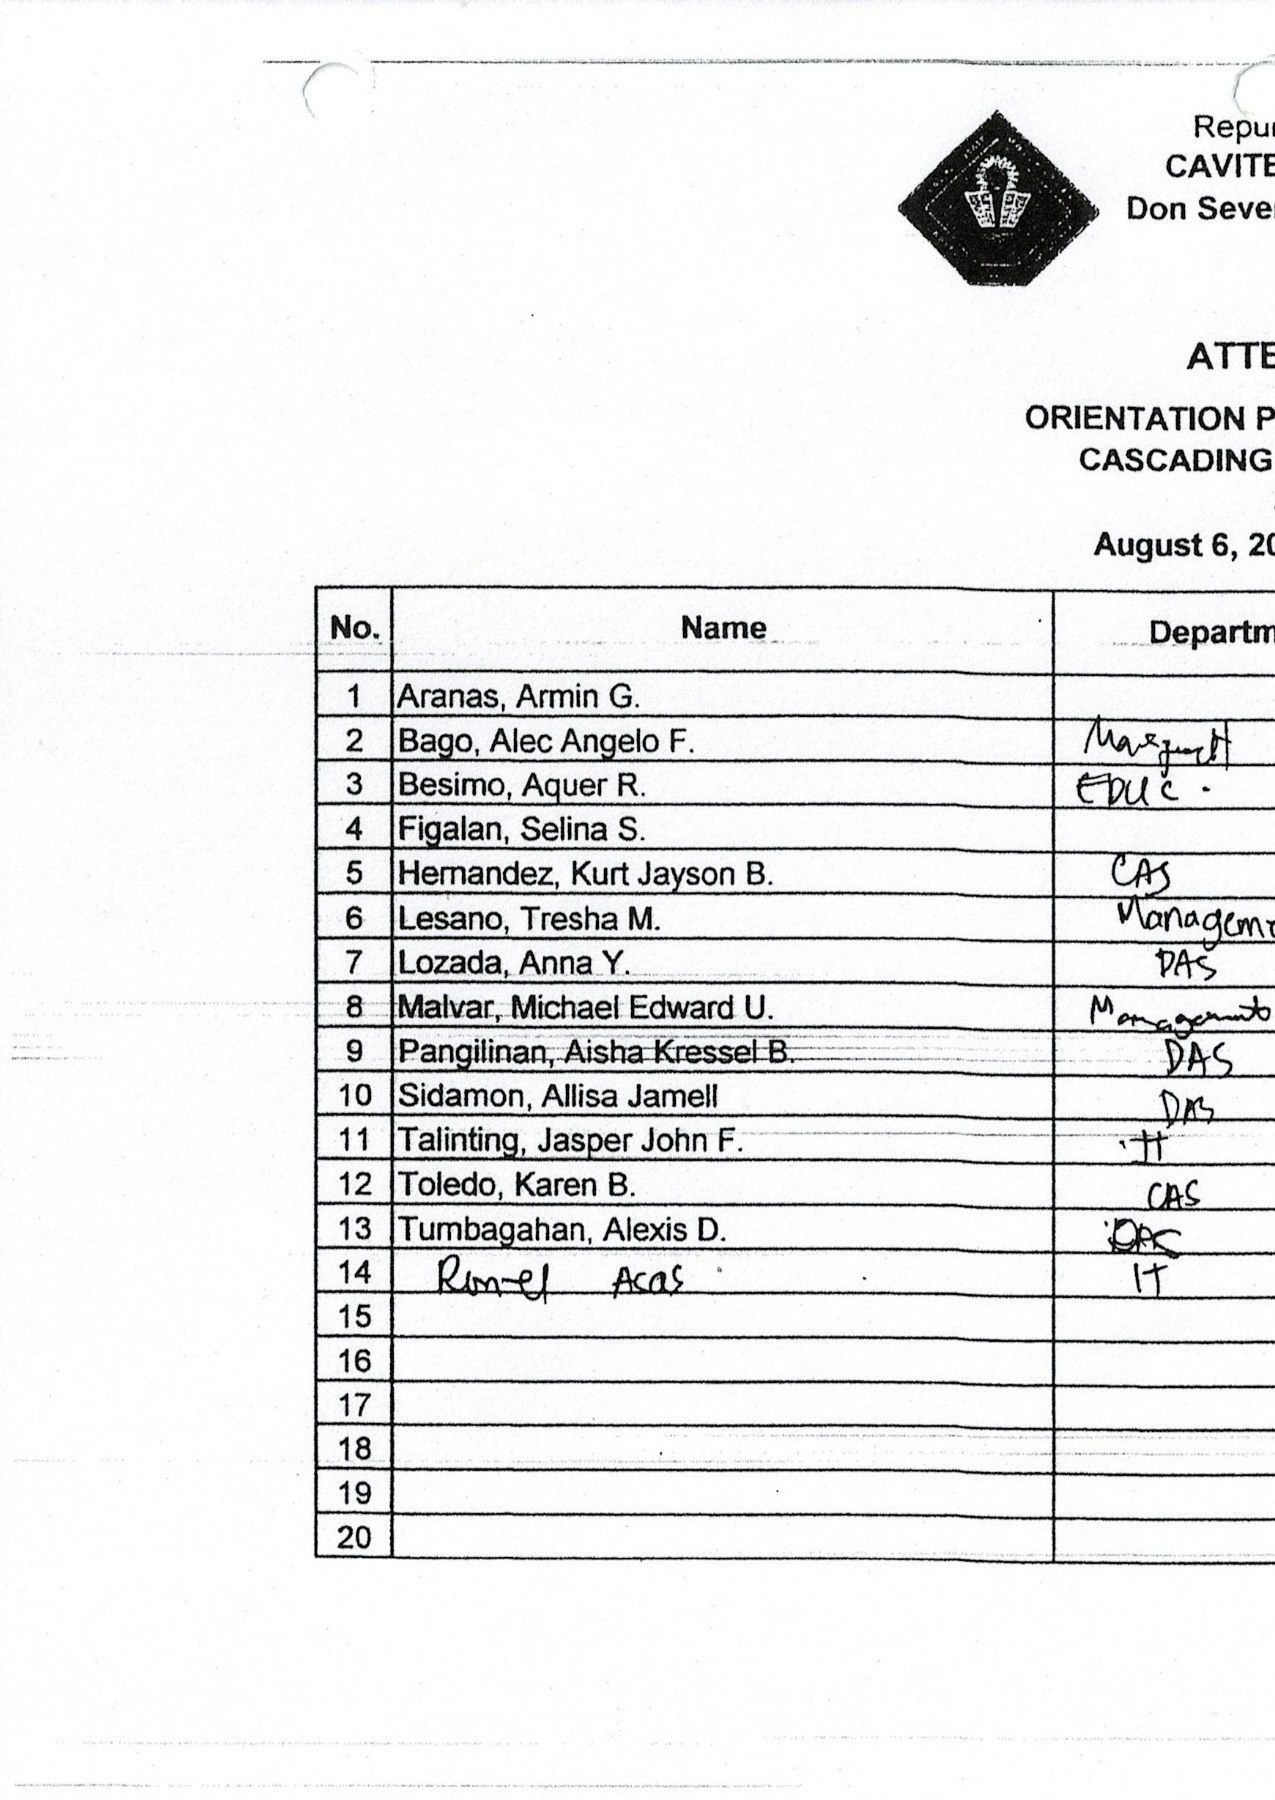 Repu
CAVITE
Don Seve
ATTE
ORIENTATION P
CASCADING
August 6, 20
No. Name Departm
1 Aranas, Armin G.
2 Bago, Alec Angelo F.
3 Besimo, Aquer R. EDUC.
4 Figalan, Selina S.
5 Hernandez, Kurt Jayson B. CAS
6 Lesano, Tresha M. Managem
7 Lozada, Anna Y. DAS
8 Malvar, Michael Edward U. Management
9 Pangilinan, Aisha Kressel B. DAS
10 Sidamon, Allisa Jamell DAS
11 Talinting, Jasper John F. IT
12 Toledo, Karen B. CAS
13 Tumbagahan, Alexis D. DAS
14 Acas IT
15
16
17
18
19
20